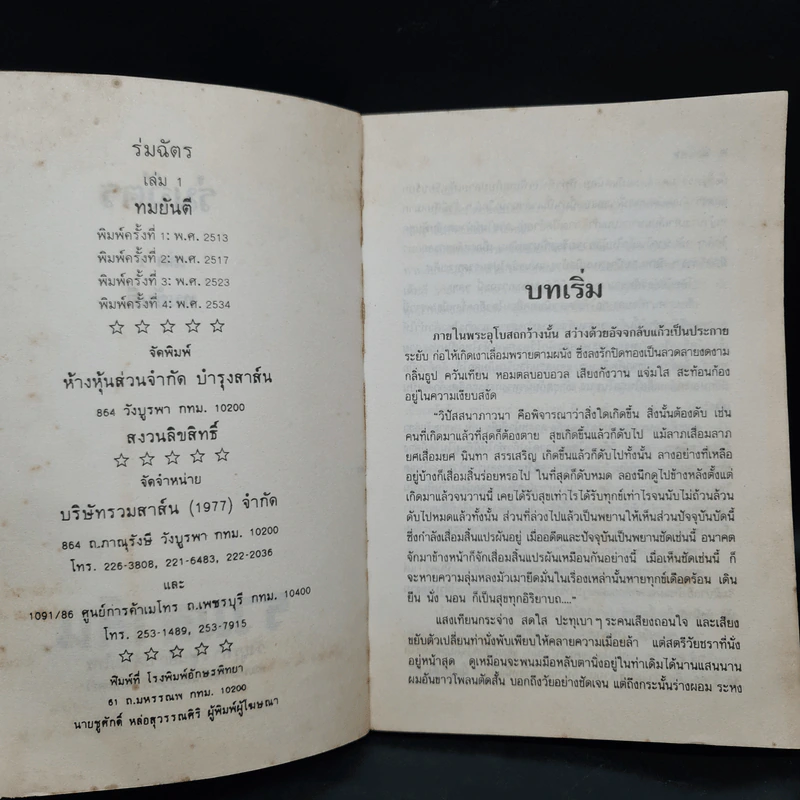 ร่มฉัตร
เล่ม 1
ทมยันตี
พิมพ์ครั้งที่ 1: พ.ศ. 2513
พิมพ์ครั้งที่ 2: พ.ศ. 2517
พิมพ์ครั้งที่ 3: พ.ศ. 2523
พิมพ์ครั้งที่ 4: พ.ศ. 2534
☆ ☆ ☆ ☆ ☆
จัดพิมพ์
ห้างหุ้นส่วนจำกัด บำรุงสาส์น
864 วังบูรพา กทม. 10200
สงวนลิขสิทธิ์
☆ ☆ ☆ ☆ ☆
จัดจำหน่าย
บริษัทรวมสาส์น (1977) จำกัด
864 ถ.ภาณุรังษี วังบูรพา กทม. 10200
โทร. 226-3808, 221-6483, 222-2036
และ
1091/86 ศูนย์การค้าเมโทร ถ.เพชรบุรี กทม. 10400
โทร. 253-1489, 253-7915
☆ ☆ ☆ ☆ ☆
พิมพ์ที่ โรงพิมพ์อักษรพิทยา
61 ถ.มหรรณพ กทม. 10200
นายชูศักดิ์ หล่อสุวรรณศิริ ผู้พิมพ์ผู้โฆษณา
บทเริ่ม
ภายในพระอุโบสถกว้างนั้น สว่างด้วยอัจจกลับแก้วเป็นประกาย
ระยับ ก่อให้เกิดเงาเลื่อมพรายตามผนัง ซึ่งลงรักปิดทองเป็นลวดลายงดงาม
กลิ่นธูป ควันเทียน หอมตลบอบอวล เสียงกังวาน แจ่มใส สะท้อนก้อง
อยู่ในความเงียบสงัด
“วิปัสสนาภาวนา คือพิจารณาว่าสิ่งใดเกิดขึ้น สิ่งนั้นต้องดับ เช่น
คนที่เกิดมาแล้วที่สุดก็ต้องตาย สุขเกิดขึ้นแล้วก็ดับไป แม้ลาภเสื่อมลาภ
ยศเสื่อมยศ นินทา สรรเสริญ เกิดขึ้นแล้วก็ดับไปทั้งนั้น ลางอย่างที่เหลือ
อยู่บ้างก็เสื่อมสิ้นร่อยหรอไป ในที่สุดก็ดับหมด ลองนึกดูไปข้างหลังตั้งแต่
เกิดมาแล้วจนวานนี้ เคยได้รับสุขเท่าไรได้รับทุกข์เท่าไรจนนับไม่ถ้วนล้วน
ดับไปหมดแล้วทั้งนั้น ส่วนที่ล่วงไปแล้วเป็นพยานให้เห็นส่วนปัจจุบันบัดนี้
ซึ่งกำลังเสื่อมสิ้นแปรผันอยู่ เมื่ออดีตและปัจจุบันเป็นพยานชัดเช่นนี้ อนาคต
จักมาข้างหน้าก็จักเสื่อมสิ้นแปรผันเหมือนกันอย่างนี้ เมื่อเห็นชัดเช่นนี้ ก็
จะหายความลุ่มหลงมัวเมายึดมั่นในเรื่องเหล่านั้นหายทุกข์เดือดร้อน เดิน
ยืน นั่ง นอน ก็เป็นสุขทุกอิริยาบถ....”
แสงเทียนกระจ่าง สดใส ปะทุเบาๆ ระคนเสียงถอนใจ และเสียง
ขยับตัวเปลี่ยนท่านั่งพับเพียบให้คลายความเมื่อยล้า แต่สตรีวัยชราที่นั่ง
อยู่หน้าสุด ดูเหมือนจะพนมมือหลับตานิ่งอยู่ในท่าเดิมได้นานแสนนาน
ผมอันขาวโพลนตัดสั้น บอกถึงวัยอย่างชัดเจน แต่ถึงกระนั้นร่างผอม ระหง